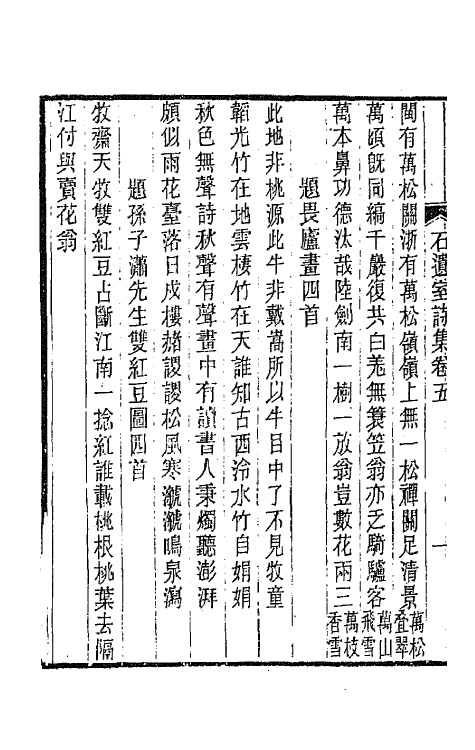 石遺室詩集卷五　一
閩有萬松關浙有萬松嶺嶺上無一松禪關足清景萬松叠翠
萬頃旣同縞千嚴復共白羗無簑笠翁亦乏騎驢客萬山飛雪
萬本鼻功德汰哉陸劍南一樹一放翁豈數花兩三萬枝香雪
題畏廬畫四首
此地非桃源此牛非戴嵩所以牛目中了不見牧童
韜光竹在地雲棲竹在天誰知古西泠水竹自娟娟
秋色無聲詩秋聲有聲畫中有讀書人秉燭聽澎湃
頗似雨花臺落日戍樓赭謖謖松風寒㶁㶁鳴泉瀉
題孫子瀟先生雙紅豆圖四首
牧齋天牧雙紅豆占斷江南一捻紅誰載桃根桃葉去隔
江付與賣花翁